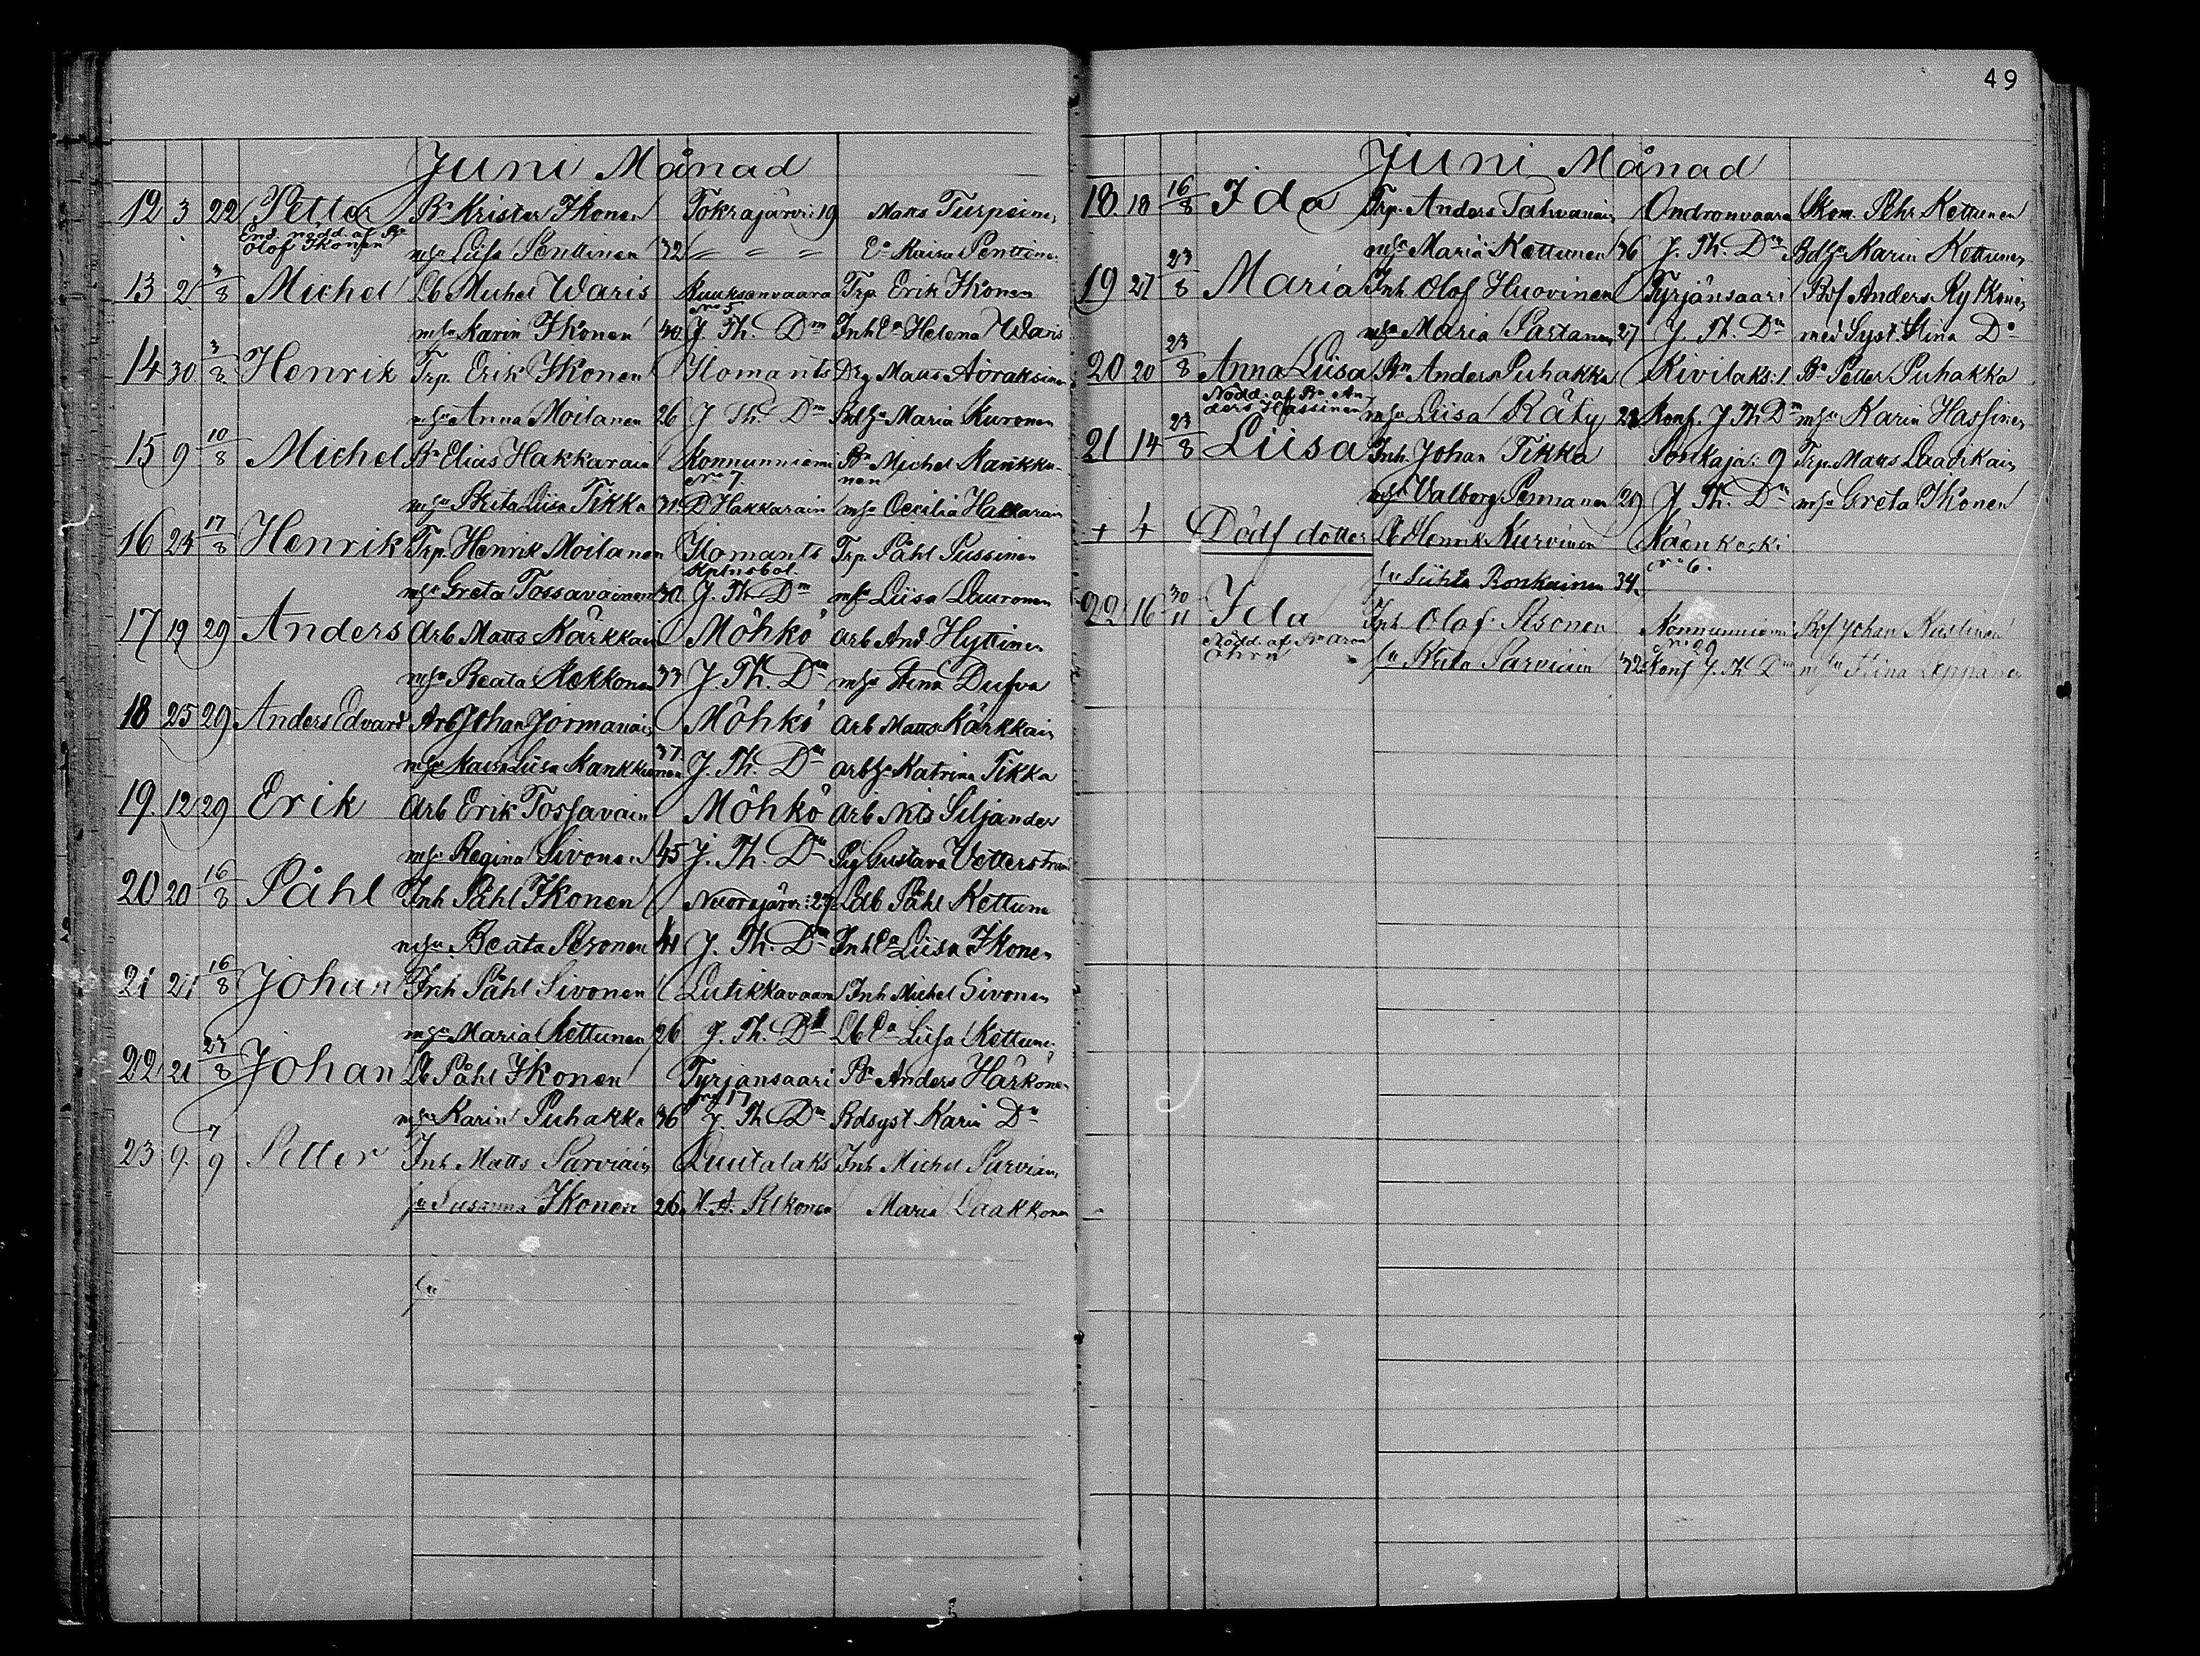 49
Juni Månad
12 3 22 Petter Bn Krister Ikonen Tokrajärvi 19 Matts Turpeine
End. nödd. af Bn
Olof Ikonen mhu Liisa Penttinen 32 Ea Kaisa Penttine
13 2 3/8 Michel Lb Michel Waris Kuuksenvaara Trp. Erik Ikonen
No 5
mhu Karin Ikonen 40 J. Th. Dm Inh Ea Helena Waris
14 30 3/8 Henrik Trp. Erik Ikonen Ilomants Drg Matts Aöraksine
mhu Anna Moilanen 26 J. Th. Dm Maria Kuronen
15 9 10/8 Michel Bn Elias Hakkarain Konnunniemi Bn Michel Kankku-
No 7. nen
mhu Brita Liisa Tikka 31 D Hakkarain mhu Cecilia Hakkarain
16 24 17/8 Henrik Trp. Henrik Moilanen Ilomants Trp. Påhl Pussinen
Kplnsbol.
mhu Greta Tossavainen 30 J. Th. Dm mhu Liisa Lauronen
17 19 29 Anders Arb Matts Kärkkäi Möhkö Arb And Hyttinen
mhu Beata Kokkonen 33 J. Th. Dm mhu Stina Dufva
18 25 29 Anders Edvard Arb Johan Jormanain Möhkö Arb Matts Kärkkäin
mhu Kaisa Liisa Kankkunen 37 J. Th. Dm Arbhu Katrina Tikka
19. 12 29 Erik Arb Erik Tossavain Möhkö Arb Nils Siljander
mhu Regina Sivonen 45 J. Th. Dm Pig Gustava Vetterstrand
20 20 16/8 Påhl Inh Påhl Ikonen Nuorajärvi: 29 Ldb Påhl Kettune
mhu Beata Peronen 41 J. Th. Dm Inh Ea Liisa Ikonen
21 21 16/8 Johan Inh Påhl Sivonen Lutikkavaara Inh Michel Sivonen
mhu Maria Kettunen 26 J. Th. Dm Lb Ea Liisa Kettune
22 21 23/8 Johan Lb Påhl Ikonen Tyrjänsaari Bn Anders Härkönen
No 17
mhu Karin Puhakka 36 J. Th Dm Bdsyst Karin Do
23 9. 7/9 Petter Inh Matts Parviain Luutalaks Inh Michel Parviain
hu Susanna Ikonen 26 H. A. Pelkonen Maria Laakkonen
hu
Juni Månad
18. 18 16/8 Ida Trp. Anders Tahvanain Ondronvaara Skom. Pehr Kettunen
mhu Maria Kettunen 36 J. Th. Dm Bdhu Karin Kettunen
19 27 23/8 Maria Inh. Olof Huovinen Tyrjänsaari Bof Anders Rytkönen
mhu Maria Partanen 27 J. Th. Dm med Syst. Stina Do
20 20 23/8 Anna Liisa Bn Anders Puhakka Kivilaks: 1 Bn Petter Puhakka
Nödd. af Bn An-
ders Hassinen mhu Liisa Räty 28 Konf. J. Th Dm mhu Karin Hassinen
21 14 23/8 Liisa Inh. Johan Tikka Sonkaja: 9 Trp. Matts Laatikain
mhu Valborg Pennanen 29 J. Th. Dm mhu Greta Ikonen
+ 4 Dödf dotter Lb Henrik Kurvinen Käenkoski
No 6.
hu Liihta Ronkainen 34.
22 16 30/11 Ida Inh Olof Asonen Konnunniemi Bof Johan Kastinen
Nödd. af Bn Aron No 29
hu Brita Parviain 32 Konf J. Th Dm mhu Stina Leppänen